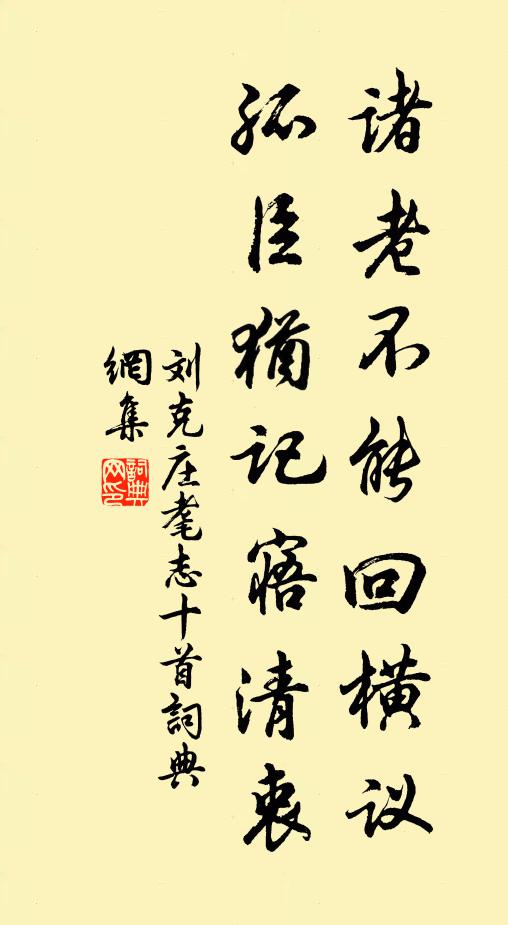 诸老不能回横议
孤臣犹记寤清衷
刘克庄耄志十首词典
網集
詞典網印